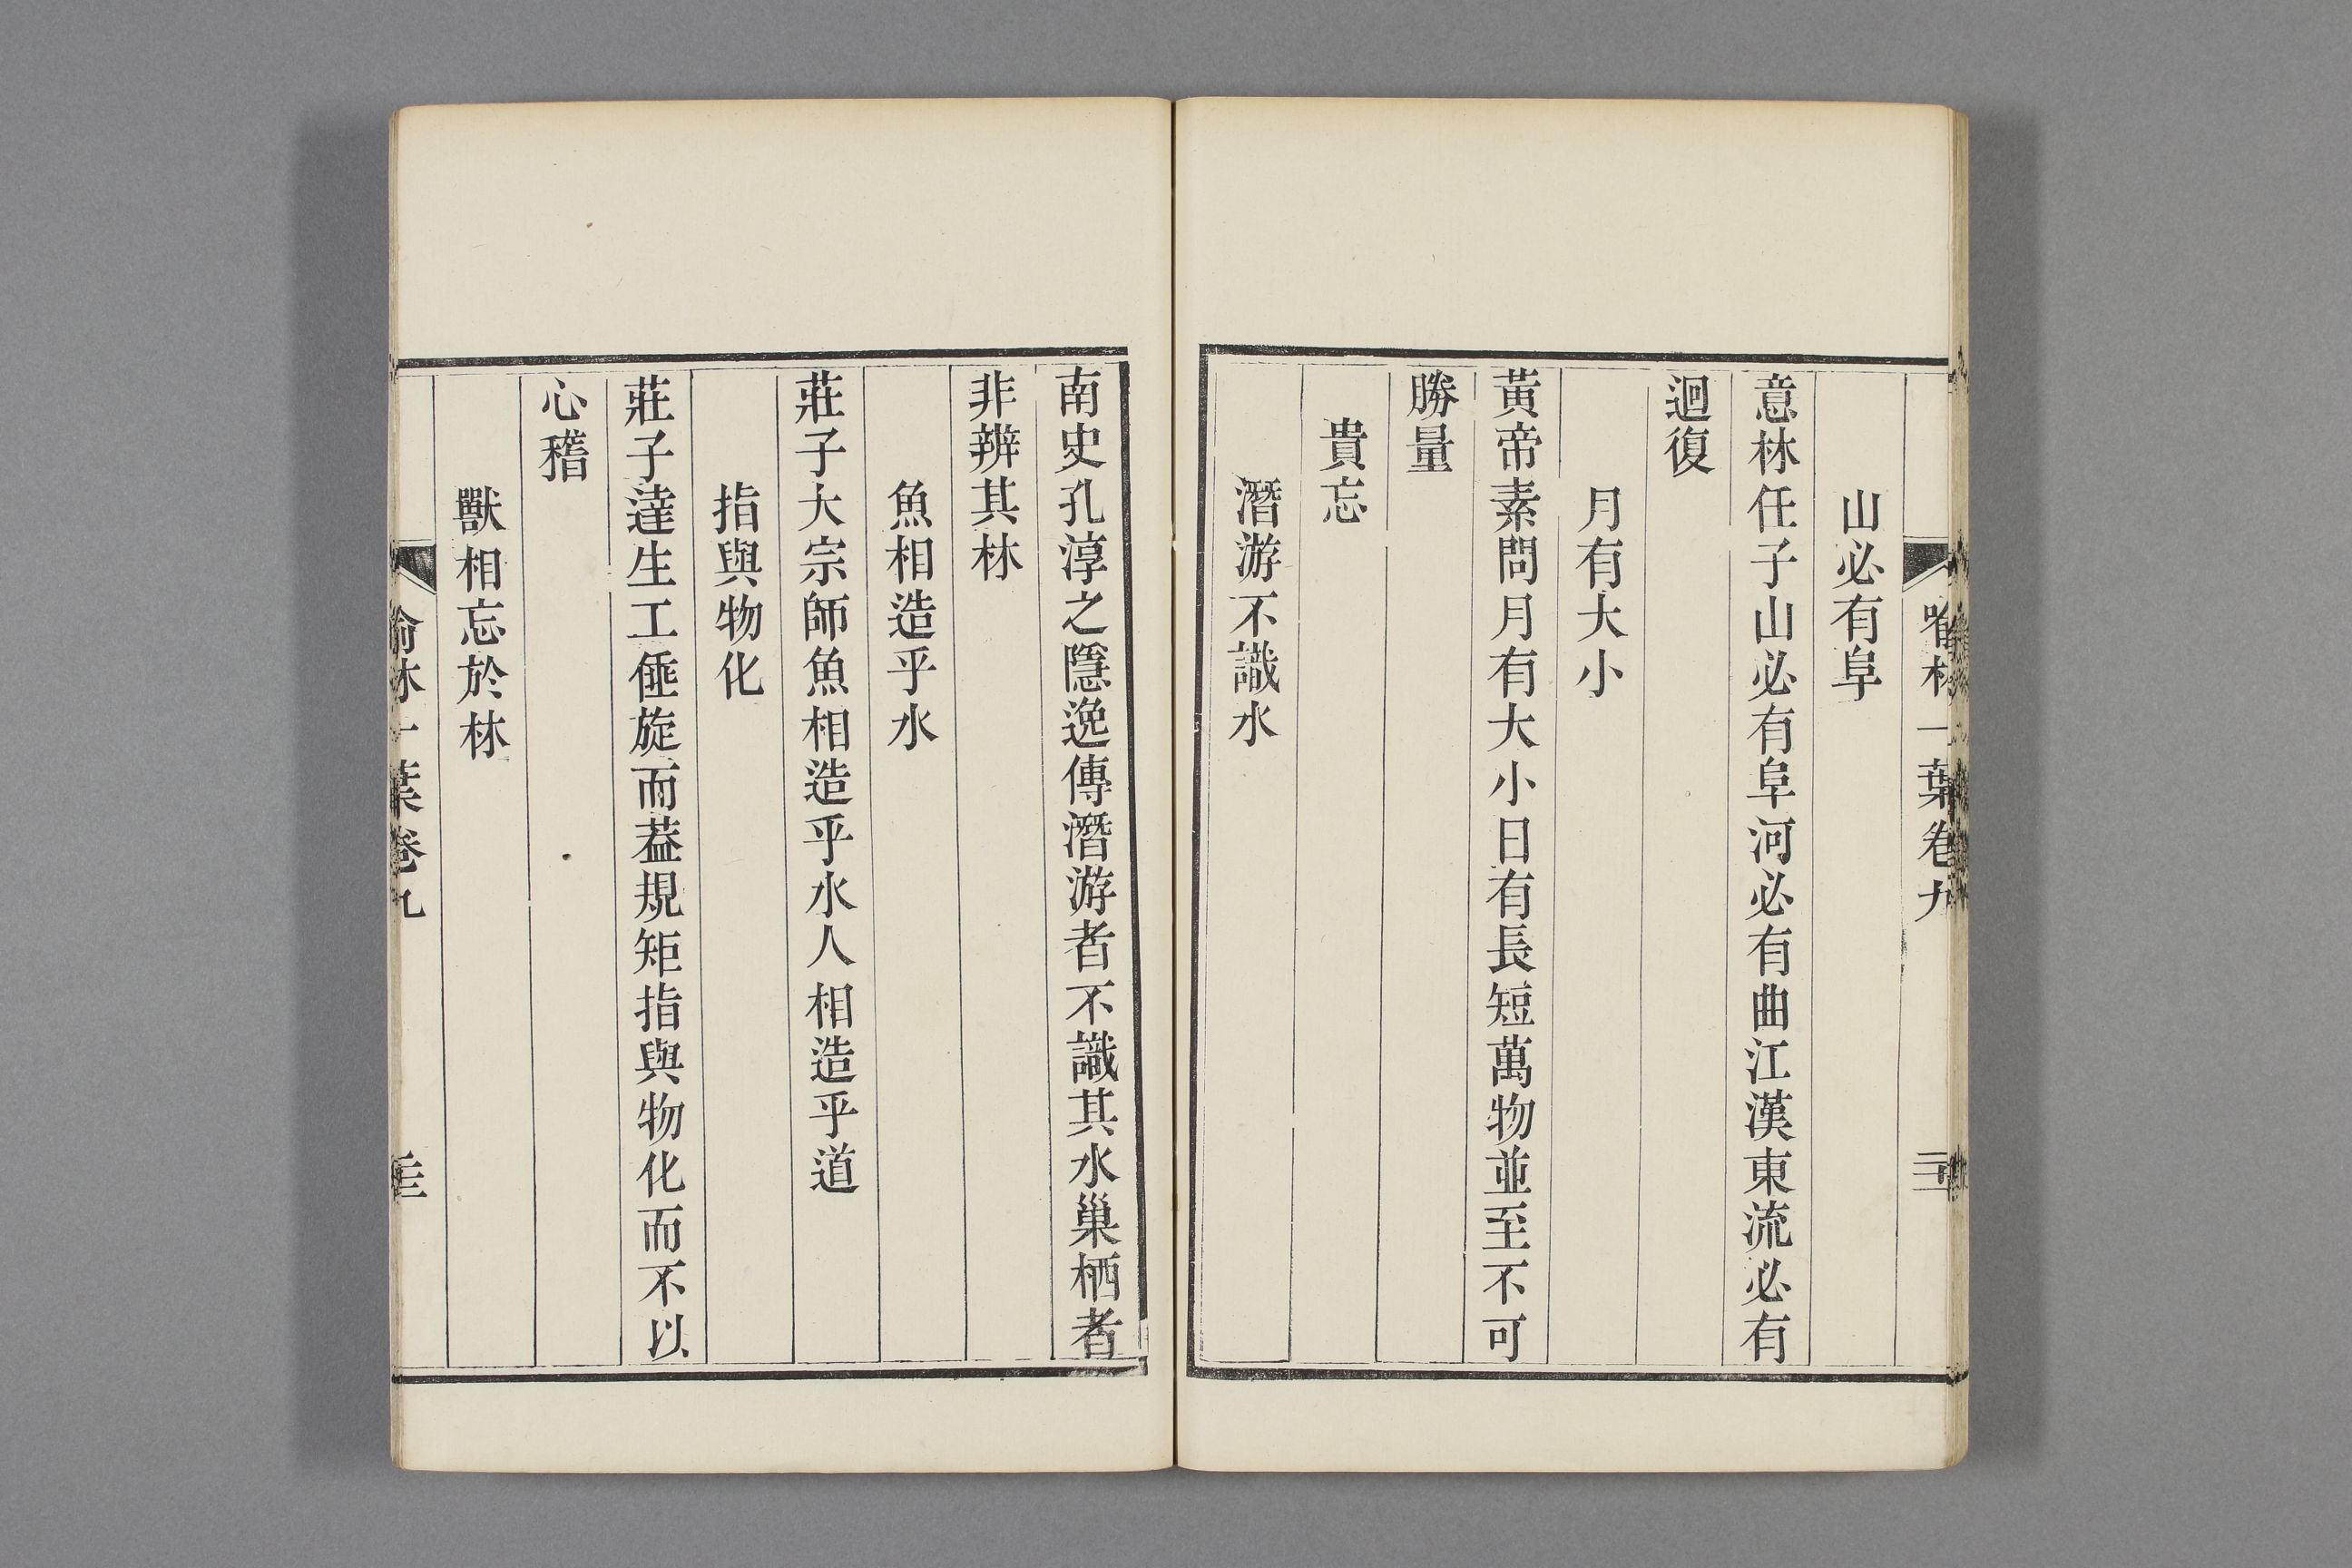 山必有阜
意林任子山必有阜河必有曲江漢東流必有
迴復
月有大小
黃帝素問月有大小日有長短萬物並至不可
勝量
貴忘
潛游不識水
南史孔淳之隱逸傳潛游者不識其水巢栖者
非辨其林
魚相造乎水
莊子大宗師魚相造乎水人相造乎道
指與物化
莊子達生工倕旋而葢規矩指與物化而不以
心稽
獸相忘於林
喻林一葉卷九